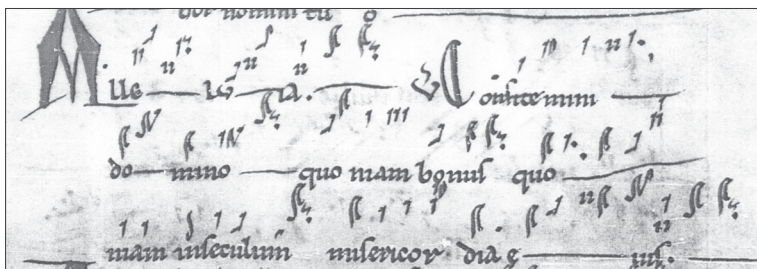 nomini tu o
Alle lu ia. Confitemini
do mino quo niam bonus quo
niam inseculum misericor dia e ius.